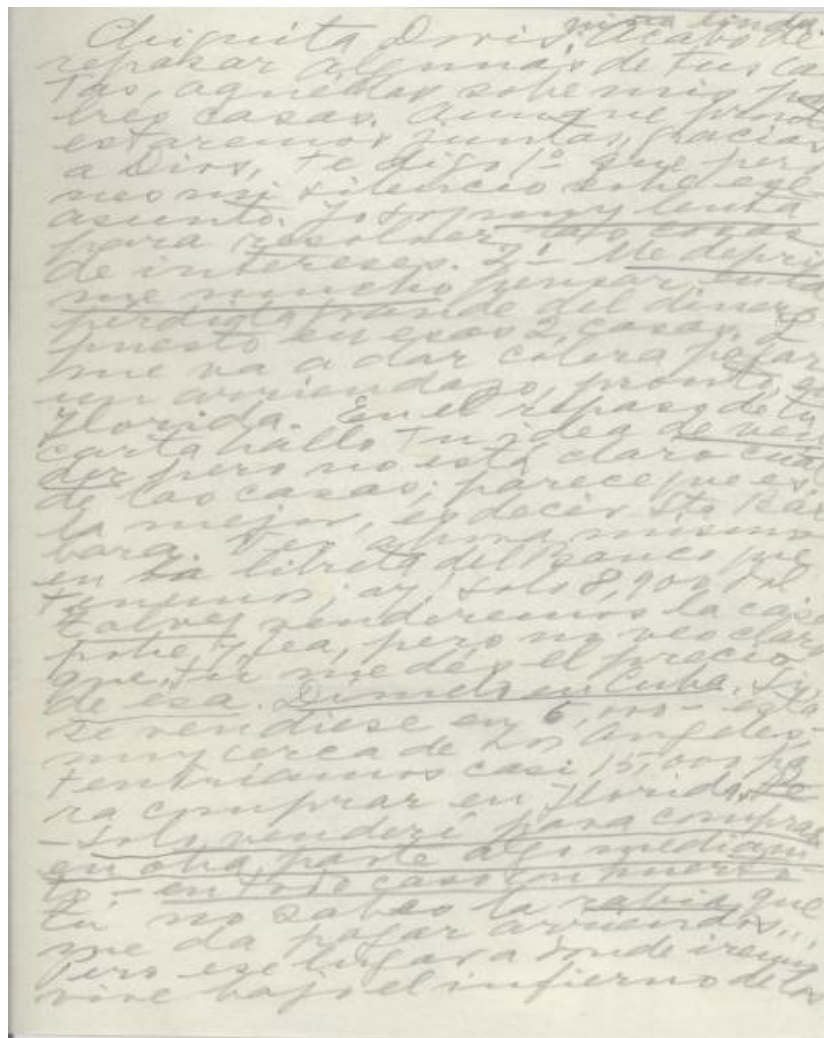 niña linda.
Chiquita Doris: Acabo de
repasar algunas de tus car
tas, aquellas sobre mis
tres casas. Aunque pront
estaremos juntas, gracias
a Dios, te digo 1º que per
nes mi silencio sobre ese
asunto. Yo soy muy lenta
para resolver cosas
de intereses. 2º Me depri
me mucho pensar en la
pérdida grande del dinero
puesto en esas 2 casas. Y
me va a dar cólera pagar
un arriendazo, pronto, en
Florida. En el repaso de tu
carta hallo tu idea de ven
der pero no está claro cuál
de las casas; parece que es
la mejor, es decir Sta Bár
bara. Veo ahora mismo
en la libreta del Banco que
tenemos, ay, solo 8,900 dol
Talvez venderemos la casa
pobre y fea, pero no veo claro
que tu me des el precio
de esa. Dímelo en Cuba. Si
se vendiese en 6,000 - está
muy cerca de Los Angeles,-
tendríamos casi 15,000 pa
ra comprar en Florida.
- Solo venderé para comprar
en otra parte algo mediani
to - en todo caso con huerto
Tú no sabes la rabia que
me da pagar arriendos..
Pero ese lugar a donde iremos
vive bajo el infierno de los